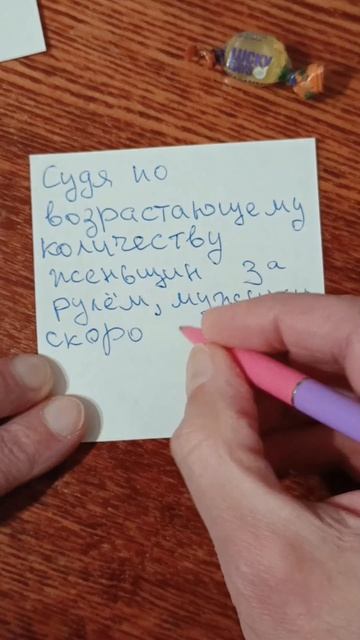 LUCKY
Судя по
возрастающему
количеству
женьщин за
рулём, мужчины
скоро